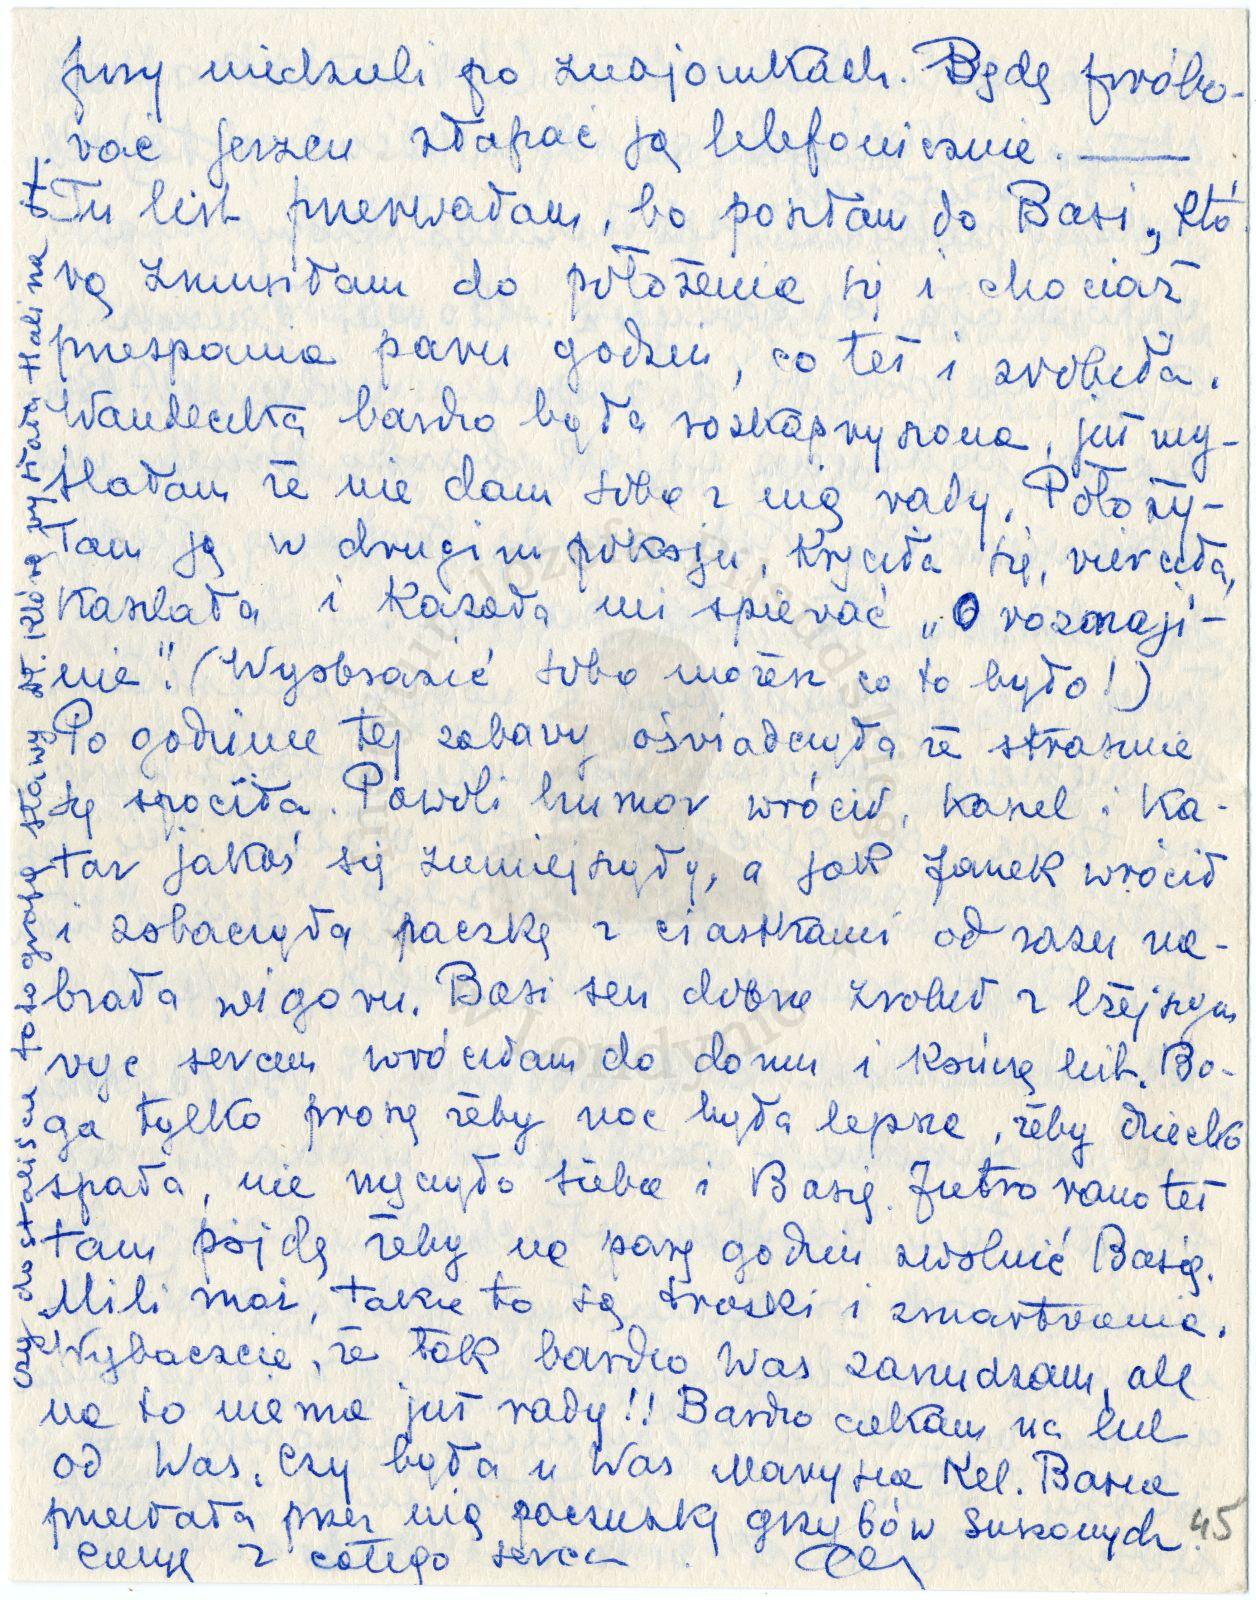 przy niedzieli po znajomkach. Będę próbo-
wać jeszcze złapać ją telefonicznie. —
Tu list przerwałam, bo poszłam do Basi, któ-
rą zmusiłam do położenia się i chociaż
przespania paru godzin, co też i zrobiła.
Wandeczka bardzo była rozkapryszona, już my-
ślałam że nie dam sobie z nią rady. Położy-
łam ją w drugim pokoju, kręciła się, wierciła,
kaszlała i kazała mi śpiewać „O rozmaji-
nie"! (Wyobrazić sobie możesz co to było!)
Po godzinie tej zabawy oświadczyła że strasznie
się spociła. Powoli humor wrócił, kaszel i ka-
tar jakoś się zmniejszyły, a jak Janek wrócił
i zobaczyła paczkę z ciastkami od razu na-
brała wigoru. Basi sen dobrze zrobił z lżejszym
więc sercem wróciłam do domu i kończę list. Bo-
ga tylko proszę żeby noc była lepsza, żeby dziecko
spała, nie męczyło siebie i Basię. Jutro rano też
tam pójdę żeby na parę godzin zwolnić Basię.
Mili moi, takie to są troski i zmartwienia.
Wybaczcie, że tak bardzo Was zanudzam, ale
na to niema już rady!! Bardzo czekam na list
od Was. Czy była u Was Marysia Kel. Basia
przesłała przez nią paczuszkę grzybów suszonych.
Całuję z całego serca
45
Czy dostaliście fotografię sławy st. którą wysłała Halina
Józefa Piłsudskiego
w Londynie